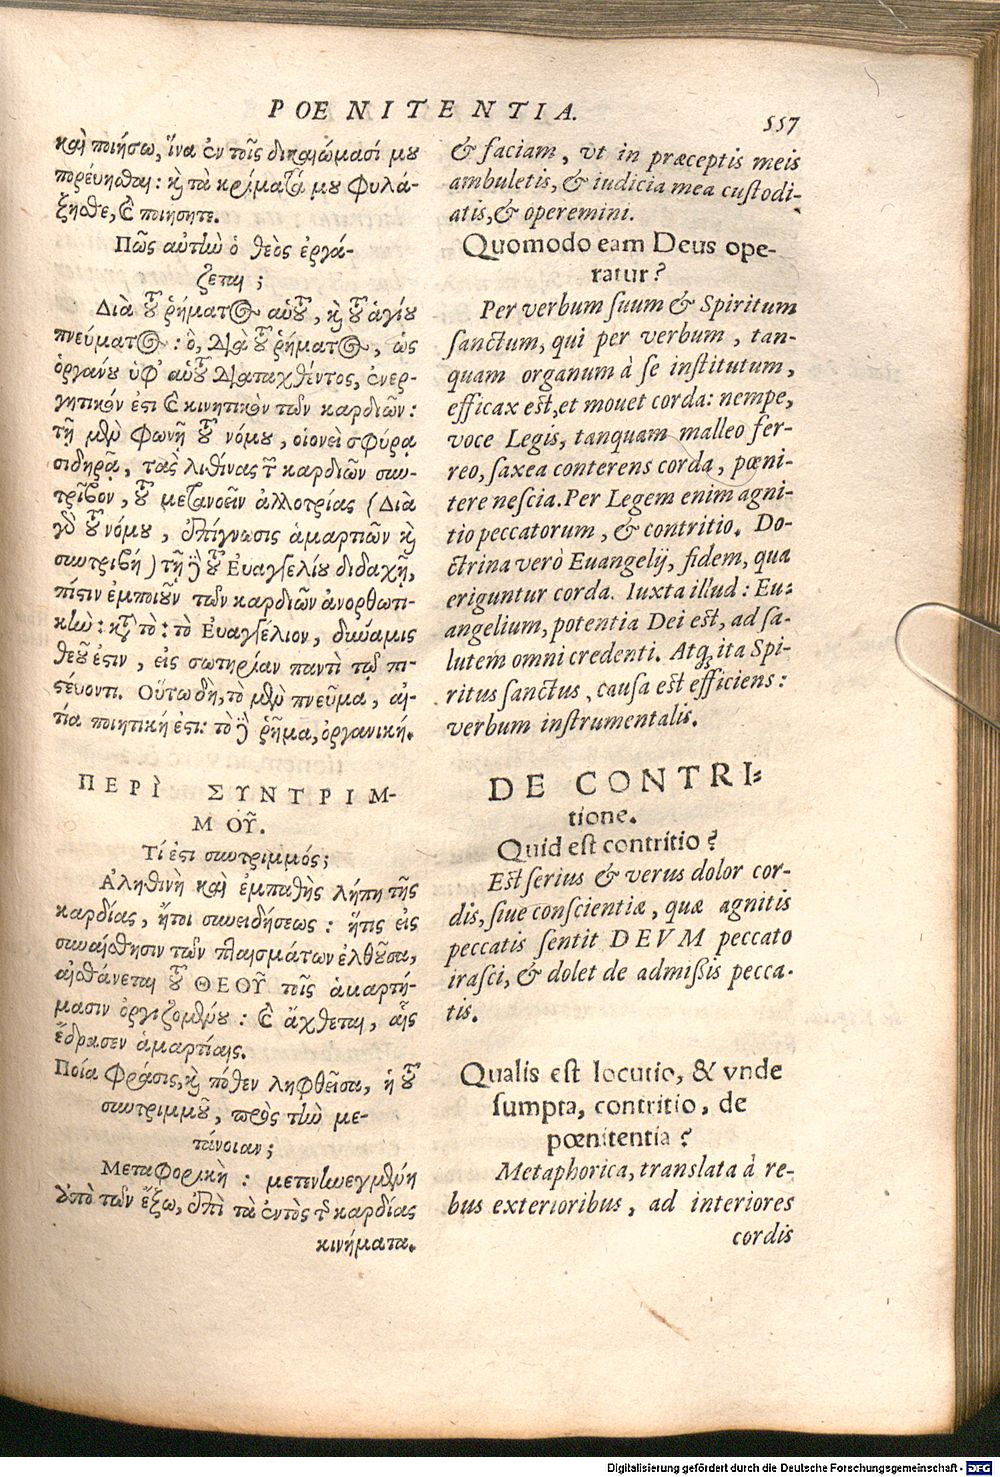 POENITENTIA.
557
καὶ ποιήσω, ἵνα ἐν τοῖς δικαιώμασί μου
πορεύησθαι: καὶ τὰ κρίματά μου φυλά-
ξησθε, καὶ ποιήσητε.
Πῶς αὐτὴν ὁ θεὸς ἐργά-
ζεται;
Διὰ τοῦ ῥήματος αὐτοῦ, καὶ τοῦ ἁγίου
πνεύματος: ὃ, διὰ τοῦ ῥήματος, ὡς
ὀργάνου ὑφ' αὑτοῦ διαταχθέντος, ἐνερ-
γητικόν ἐστι καὶ κινητικὸν τῶν καρδιῶν:
τῇ μὲν φωνῇ τοῦ νόμου, οἱονεὶ σφύρᾳ
σιδηρᾷ, τὰς λιθίνας τῶν καρδιῶν συν-
τρῖβον, τοῦ μετανοεῖν ἀλλοτρίας (Διὰ
γὰρ τοῦ νόμου, ἐπίγνωσις ἁμαρτιῶν καὶ
συντριβή) τῇ δὲ τοῦ Εὐαγγελίου διδαχῇ,
πίστιν ἐμποιοῦν τῶν καρδιῶν ἀνορθωτι-
κήν: κατὰ τό: τὸ Εὐαγγέλιον, δύναμις
θεοῦ ἐστιν, εἰς σωτηρίαν παντὶ τῷ πι-
στεύοντι. Οὕτω δὴ, τὸ μὲν πνεῦμα, αἰ-
τία ποιητική ἐστι: τὸ δὲ ῥῆμα, ὀργανική.
ΠΕΡῚ ΣΥΝΤΡΙΜ-
ΜΟΥ͂.
Τί ἐστι συντριμμός;
Ἀληθινὴ καὶ ἐμπαθὴς λήπη τῆς
καρδίας, ἤτοι συνειδήσεως: ἥτις εἰς
συναίσθησιν τῶν πλαισμάτων ἐλθοῦσα,
αἰσθάνεται τοῦ ΘΕΟΥ͂ τοῖς ἁμαρτή-
μασιν ὀργιζομένου: καὶ ἄχθεται, αἷς
ἔδρασεν ἁμαρτίαις.
Ποία φράσις, καὶ πόθεν ληφθεῖσα, ἡ τοῦ
συντριμμοῦ, πρὸς τὴν με-
τάνοιαν;
Μεταφορικὴ: μετενηνεγμένη
ἀπὸ τῶν ἔξω, ἐπὶ τὰ ἐντὸς τῆς καρδίας
κινήματα.
& faciam, vt in præceptis meis
ambuletis, & iudicia mea custodi-
atis, & operemini.
Quomodo eam Deus ope-
ratur?
Per verbum suum & Spiritum
sanctum, qui per verbum, tan-
quam organum à se institutum,
efficax est, et mouet corda: nempe,
voce Legis, tanquam malleo fer-
reo, saxea conterens corda, pœni-
tere nescia. Per Legem enim agni-
tio peccatorum, & contritio. Do-
ctrina verò Euangelij, fidem, qua
eriguntur corda. Iuxta illud: Eu-
angelium, potentia Dei est, ad sa-
lutem omni credenti. Atq; ita Spi-
ritus sanctus, causa est efficiens:
verbum instrumentalis.
DE CONTRI-
tione.
Quid est contritio?
Est serius & verus dolor cor-
dis, siue conscientiæ, quæ agnitis
peccatis sentit DEVM peccato
irasci, & dolet de admissis pecca-
tis.
Qualis est locutio, & vnde
sumpta, contritio, de
pœnitentia?
Metaphorica, translata à re-
bus exterioribus, ad interiores
cordis
Digitalisierung gefördert durch die Deutsche Forschungsgemeinschaft - DFG